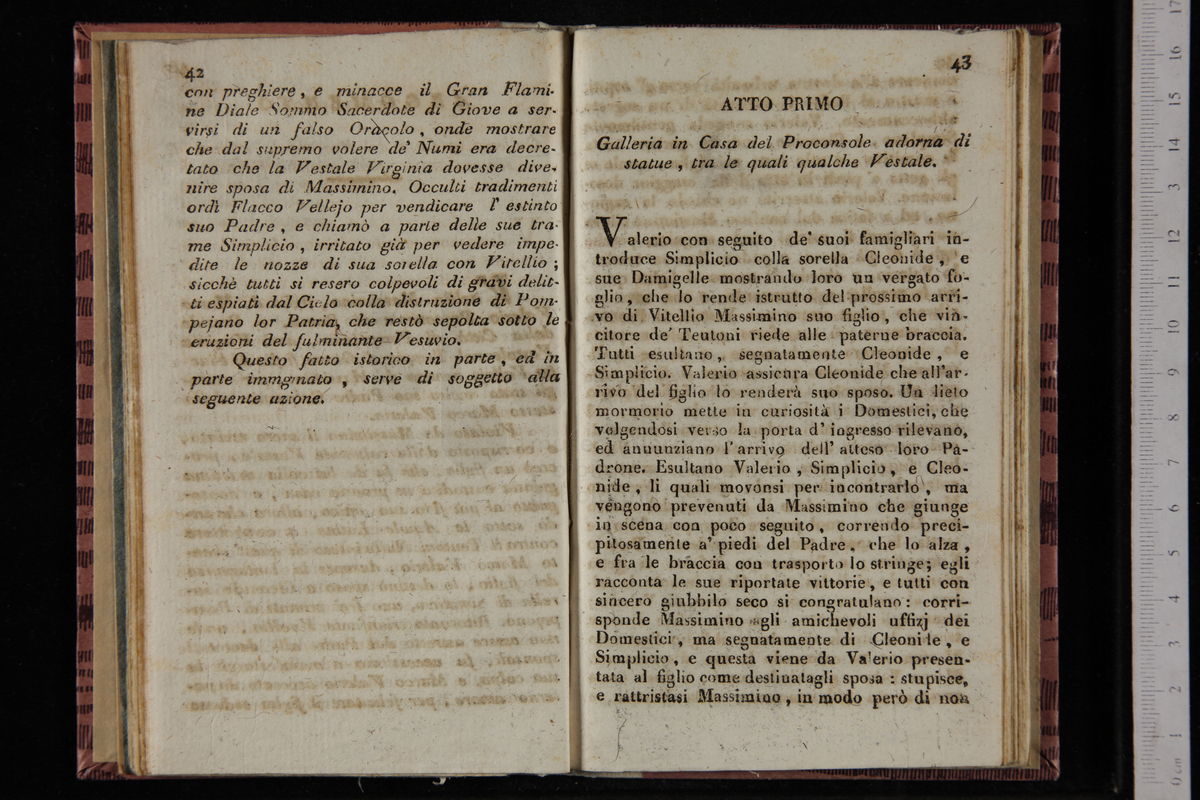 42
con preghiere, e minacce il Gran Flami-
ne Diale Sommo Sacerdote di Giove a ser-
virsi di un falso Oràcolo, onde mostrare
che dal supremo volere de' Numi era decre-
tato che la Vestale Virginia dovesse dive-
nire sposa di Massimino. Occulti tradimenti
ordì Flacco Vellejo per vendicare l' estinto
suo Padre, e chiamò a parte delle sue tra-
me Simplicio, irritato già per vedere impe-
dite le nozze di sua sorella con Vitellio;
sicchè tutti si resero colpevoli di gravi delit-
ti espiati dal Cielo colla distruzione di Pom-
pejano lor Patria, che restò sepolta sotto le
eruzioni del fulminante Vesuvio.
Questo fatto istorico in parte, ed in
parte immginato, serve di soggetto alla
seguente azione.
43
ATTO PRIMO
Galleria in Casa del Proconsole adorna di
statue, tra le quali qualche Vestale.
Valerio con seguito de' suoi famigliari in-
troduce Simplicio colla sorella Cleonide, e
sue Damigelle mostrando loro un vergato fo-
glio, che lo rende istrutto del prossimo arri-
vo di Vitellio Massimino suo figlio, che vin-
citore de' Teutoni riede alle paterne braccia.
Tutti esultano, segnatamente Cleonide, e
Simplicio. Valerio assicura Cleonide che all'ar-
rivo del figlio lo renderà suo sposo. Un lieto
mormorio mette in curiosità i Domestici, che
volgendosi verso la porta d' ingresso rilevano,
ed anuunziano l' arrivo dell' atteso loro Pa-
drone. Esultano Valerio, Simplicio, e Cleo-
nide, li quali movonsi per incontrarlo, ma
vengono prevenuti da Massimino che giunge
in scena con poco seguito, correndo preci-
pitosamente a' piedi del Padre, che lo alza,
e fra le braccia con trasporto lo stringe; egli
racconta le sue riportate vittorie, e tutti con
sincero giubbilo seco si congratulano: corri-
sponde Massimino agli amichevoli uffizj dei
Domestici, ma segnatamente di Cleonide, e
Simplicio, e questa viene da Valerio presen-
tata al figlio come destinatagli sposa: stupisce,
e rattristasi Massimino, in modo però di non
0 cm 1 2 3 4 5 6 7 8 9 10 11 12 13 14 15 16 17